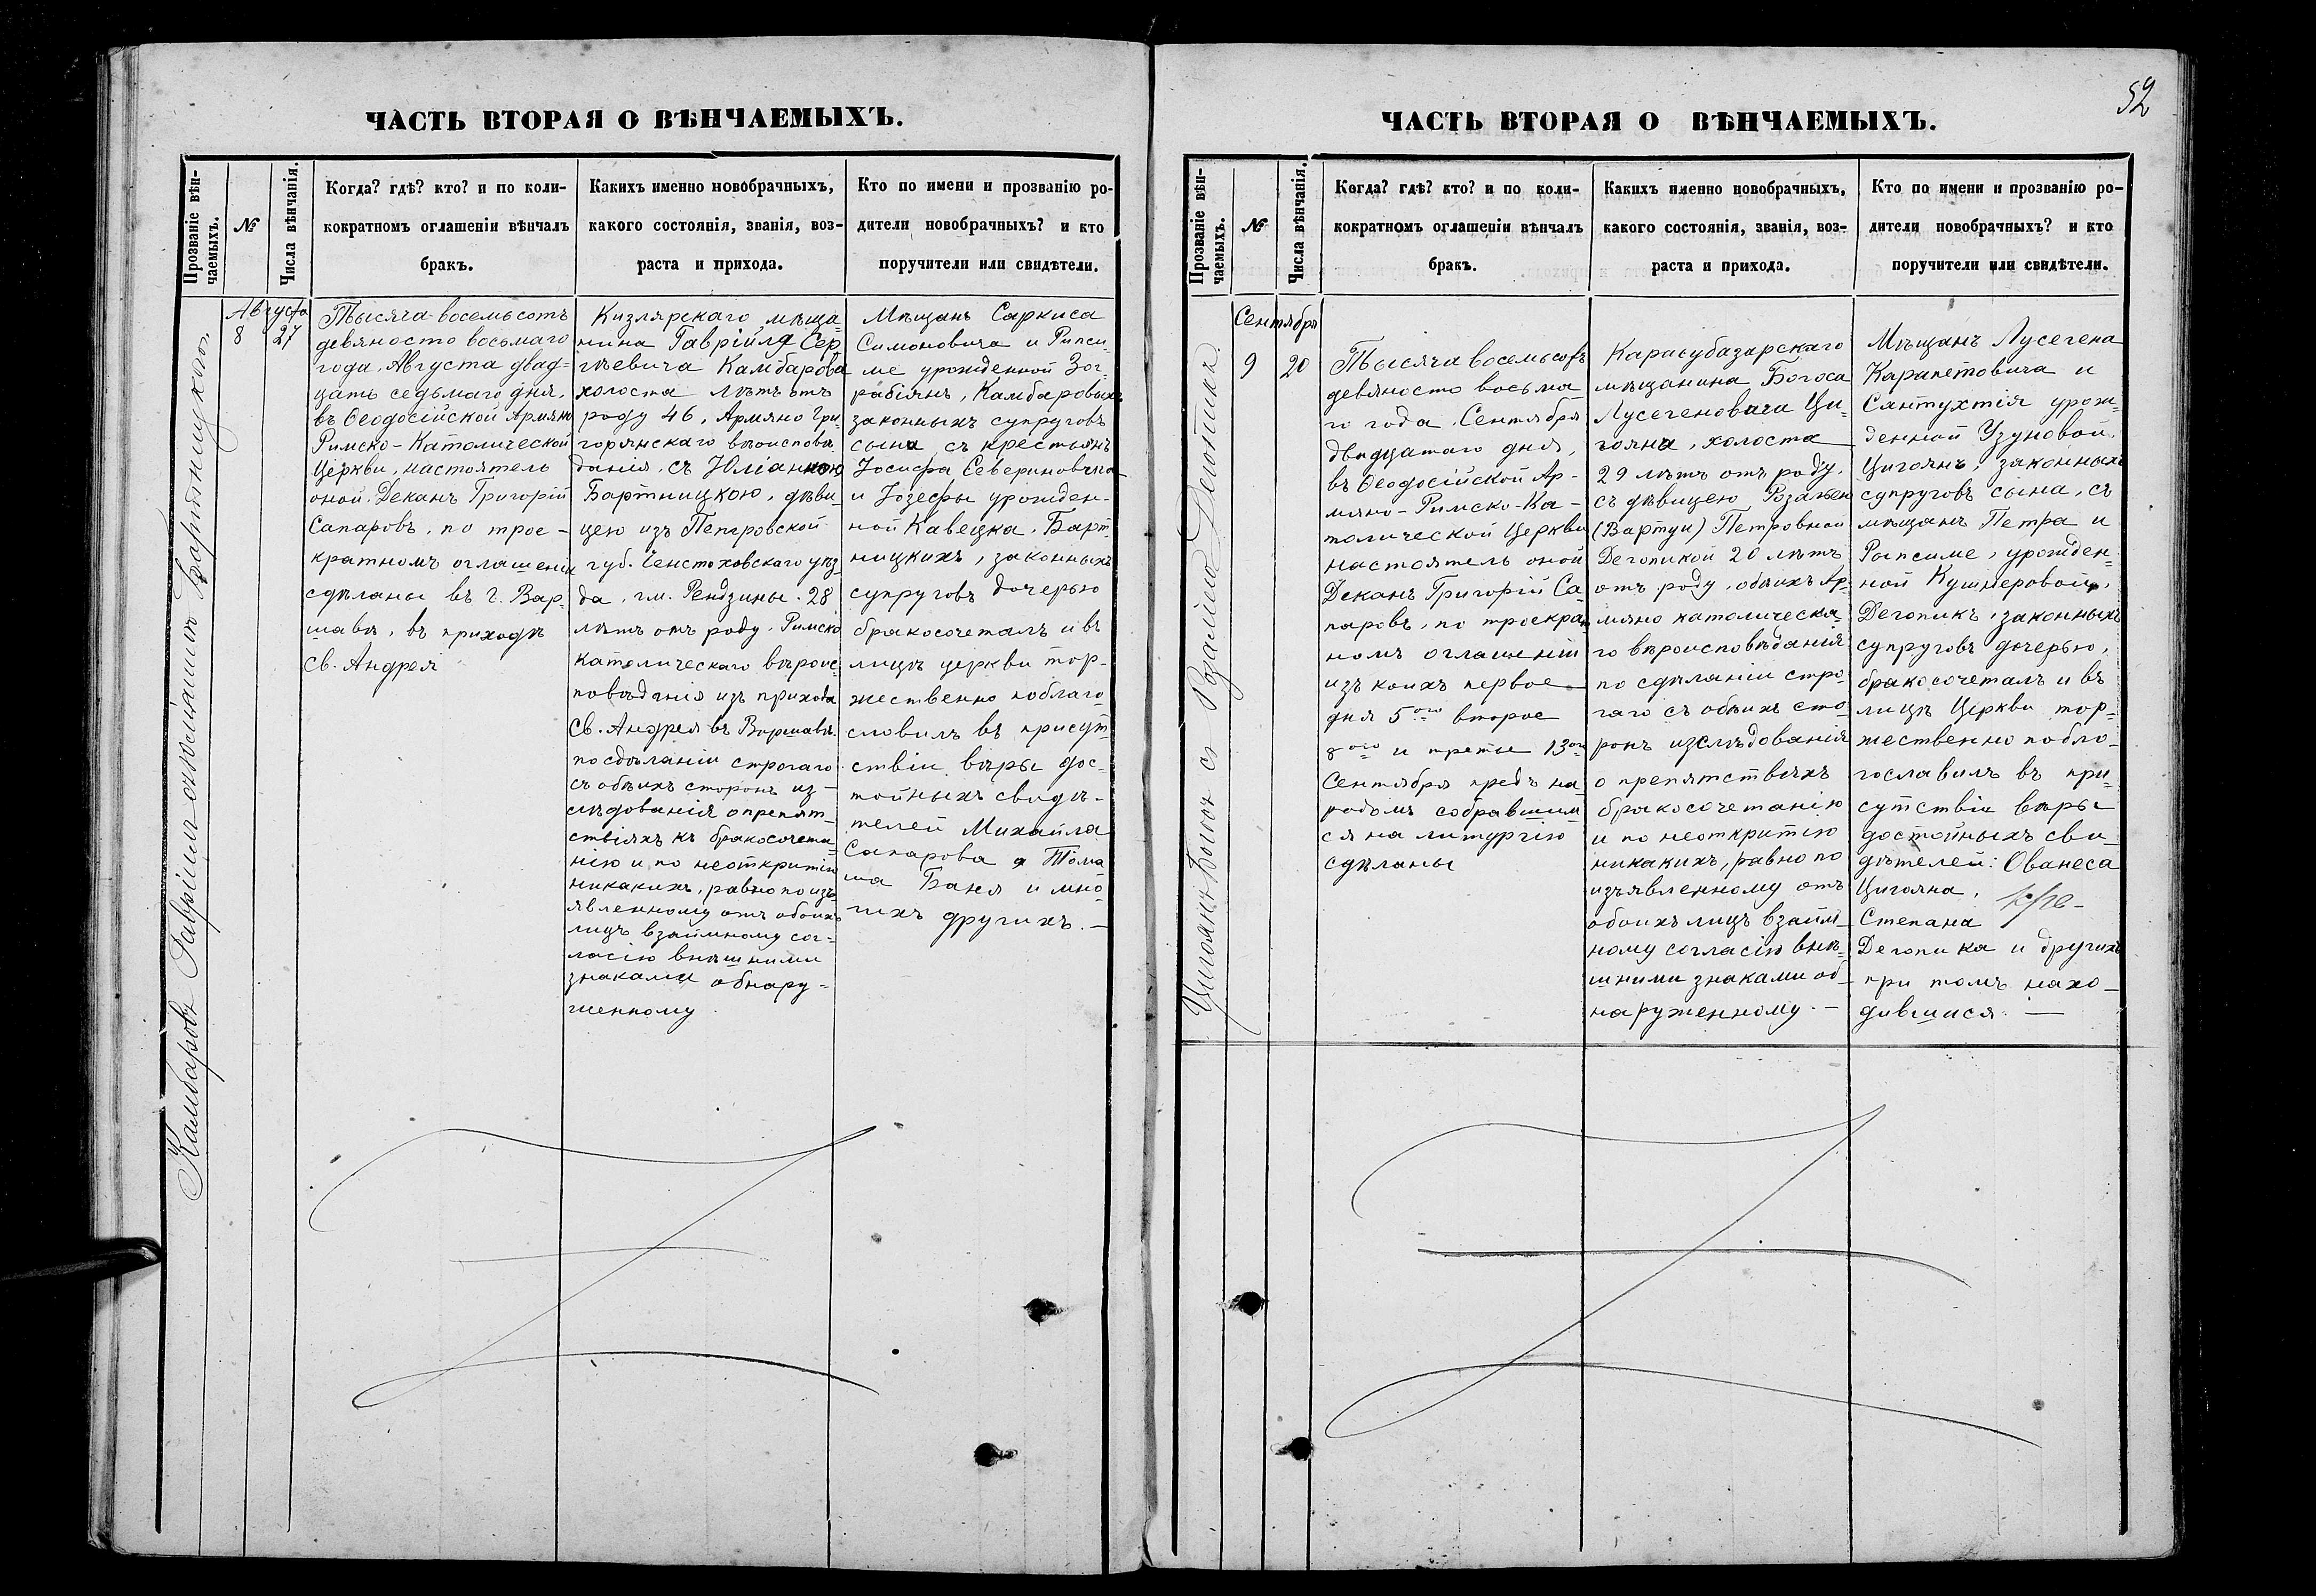 ЧАСТЬ ВТОРАЯ О ВѢНЧАЕМЫХЪ.
Прозваніе вѣн-
чаемыхъ.
№
Числа вѣнчанія.
Когда? гдѣ? кто? и по коли-
кократномъ оглашеніи вѣнчалъ
бракъ.
Какихъ именно новобрачныхъ,
какого состоянія, званія, воз-
раста и прихода.
Кто по имени и прозванію ро-
дители новобрачныхъ? и кто
поручители или свидѣтели.
Камбаровъ Гавріилъ съ Юліанною Бартницкою
Августа
8
27
Тысяча восемьсотъ
девяносто восьмаго
года, Августа двад-
цать седьмаго дня,
въ Ѳеодосійской Армяно
Римско-Католической
Церкви, настоятель
оной, Деканъ Григорій
Сапаровъ, по трое-
кратномъ оглашеніи
сдѣланы въ г. Вар-
шавѣ, въ приходѣ
Св. Андрея
Кизлярскаго мѣща-
нина Гавріила Сер
гѣевича Камбарова
холоста лѣтъ отъ
роду 46, Армяно Гри-
горянскаго вѣроисповѣ
данія, съ Юліанною
Бартницкою, дѣви
цею изъ Петровской
губ. Ченстоховскаго уѣз-
да, гм. Рендзины. 28
лѣтъ отъ роду, Римско
католическаго вѣроис
повѣданія изъ прихода
Св. Андрея въ Варшавѣ.
по сдѣланіи строгаго
съ обѣихъ сторонъ из-
слѣдованія о препят-
ствіяхъ къ бракосочета-
нію и по неоткритію
никакихъ, равно по изъ
явленному отъ обоихъ
лицъ взаимному сог-
ласію внѣшними
знаками обнару-
женному.
Мѣщанъ Саркиса
Симоновича и Рипси-
ме урожденной Зог-
рабіянъ, Камбаровыхъ
законныхъ супруговъ
сына съ крестьянъ
Іосифа Севериновича
и Іозефы урожден-
ной Кавецка, Барт-
ницкихъ, законныхъ
супруговъ дочерью
бракосочеталъ и въ
лицѣ церкви тор-
жественно поблаго-
словилъ въ присут-
ствіи вѣры дос-
тойныхъ свидѣ-
телей Михайла
Сапарова и Тома
ша Баня и мно-
гихъ другихъ. —
52
ЧАСТЬ ВТОРАЯ О ВѢНЧАЕМЫХЪ.
Прозваніе вѣн-
чаемыхъ.
№
Числа вѣнчанія.
Когда? гдѣ? кто? и по коли-
кократномъ оглашеніи вѣнчалъ
бракъ.
Какихъ именно новобрачныхъ,
какого состоянія, званія, воз-
раста и прихода.
Кто по имени и прозванію ро-
дители новобрачныхъ? и кто
поручители или свидѣтели.
Цигоянъ Богосъ съ Розаліею Дегопикъ
Сентября
9
20
Тысяча восемьсотъ
девяносто восьма
го года, Сентября
двадцатаго дня,
въ Ѳеодосійской Ар-
мяно-Римско-Ка-
толической Церкви
настоятель оной
Деканъ Григорій Са-
паровъ, по троекрат
номъ оглашеніи
изъ коихъ первое
дня 5ого второе
8ого и третье 13ого
Сентября предъ на-
родомъ собравшим
ся на литургію
сдѣланы
Карасубазарскаго
мѣщанина Богоса
Лусегеновича Ци-
гояна, холоста
29 лѣтъ отъ роду,
съ дѣвицею Розаліею
(Вартуи) Петровной
Дегопикой 20 лѣтъ
отъ роду, обѣихъ Ар-
мяно католическа-
го вѣроисповѣданія
по сдѣланіи стро-
гаго съ обѣихъ сто-
ронъ изслѣдованія
о препятствіяхъ
бракосочетанію
и по неоткритію
никакихъ, равно по
изъявленному отъ
обоихъ лицъ взаим-
ному согласію внѣ-
шними знаками об-
наруженному. —
Мѣщанъ Лусегена
Карапетовича и
Сантухтія урож-
денной Узуновой,
Цигоянъ, законныхъ
супруговъ сына, съ
мѣщанъ Петра и
Рипсиме, урожден-
ной Кушнеровой,
Дегопикъ, законныхъ
супруговъ дочерью,
бракосочеталъ и въ
лицѣ Церкви тор-
жественно побла-
гославилъ въ при-
сутствіи вѣры
достойныхъ сви-
дѣтелей: Ованеса
Цигояна,
Степана
Дегопика и другихъ
при томъ нахо-
дившися. —